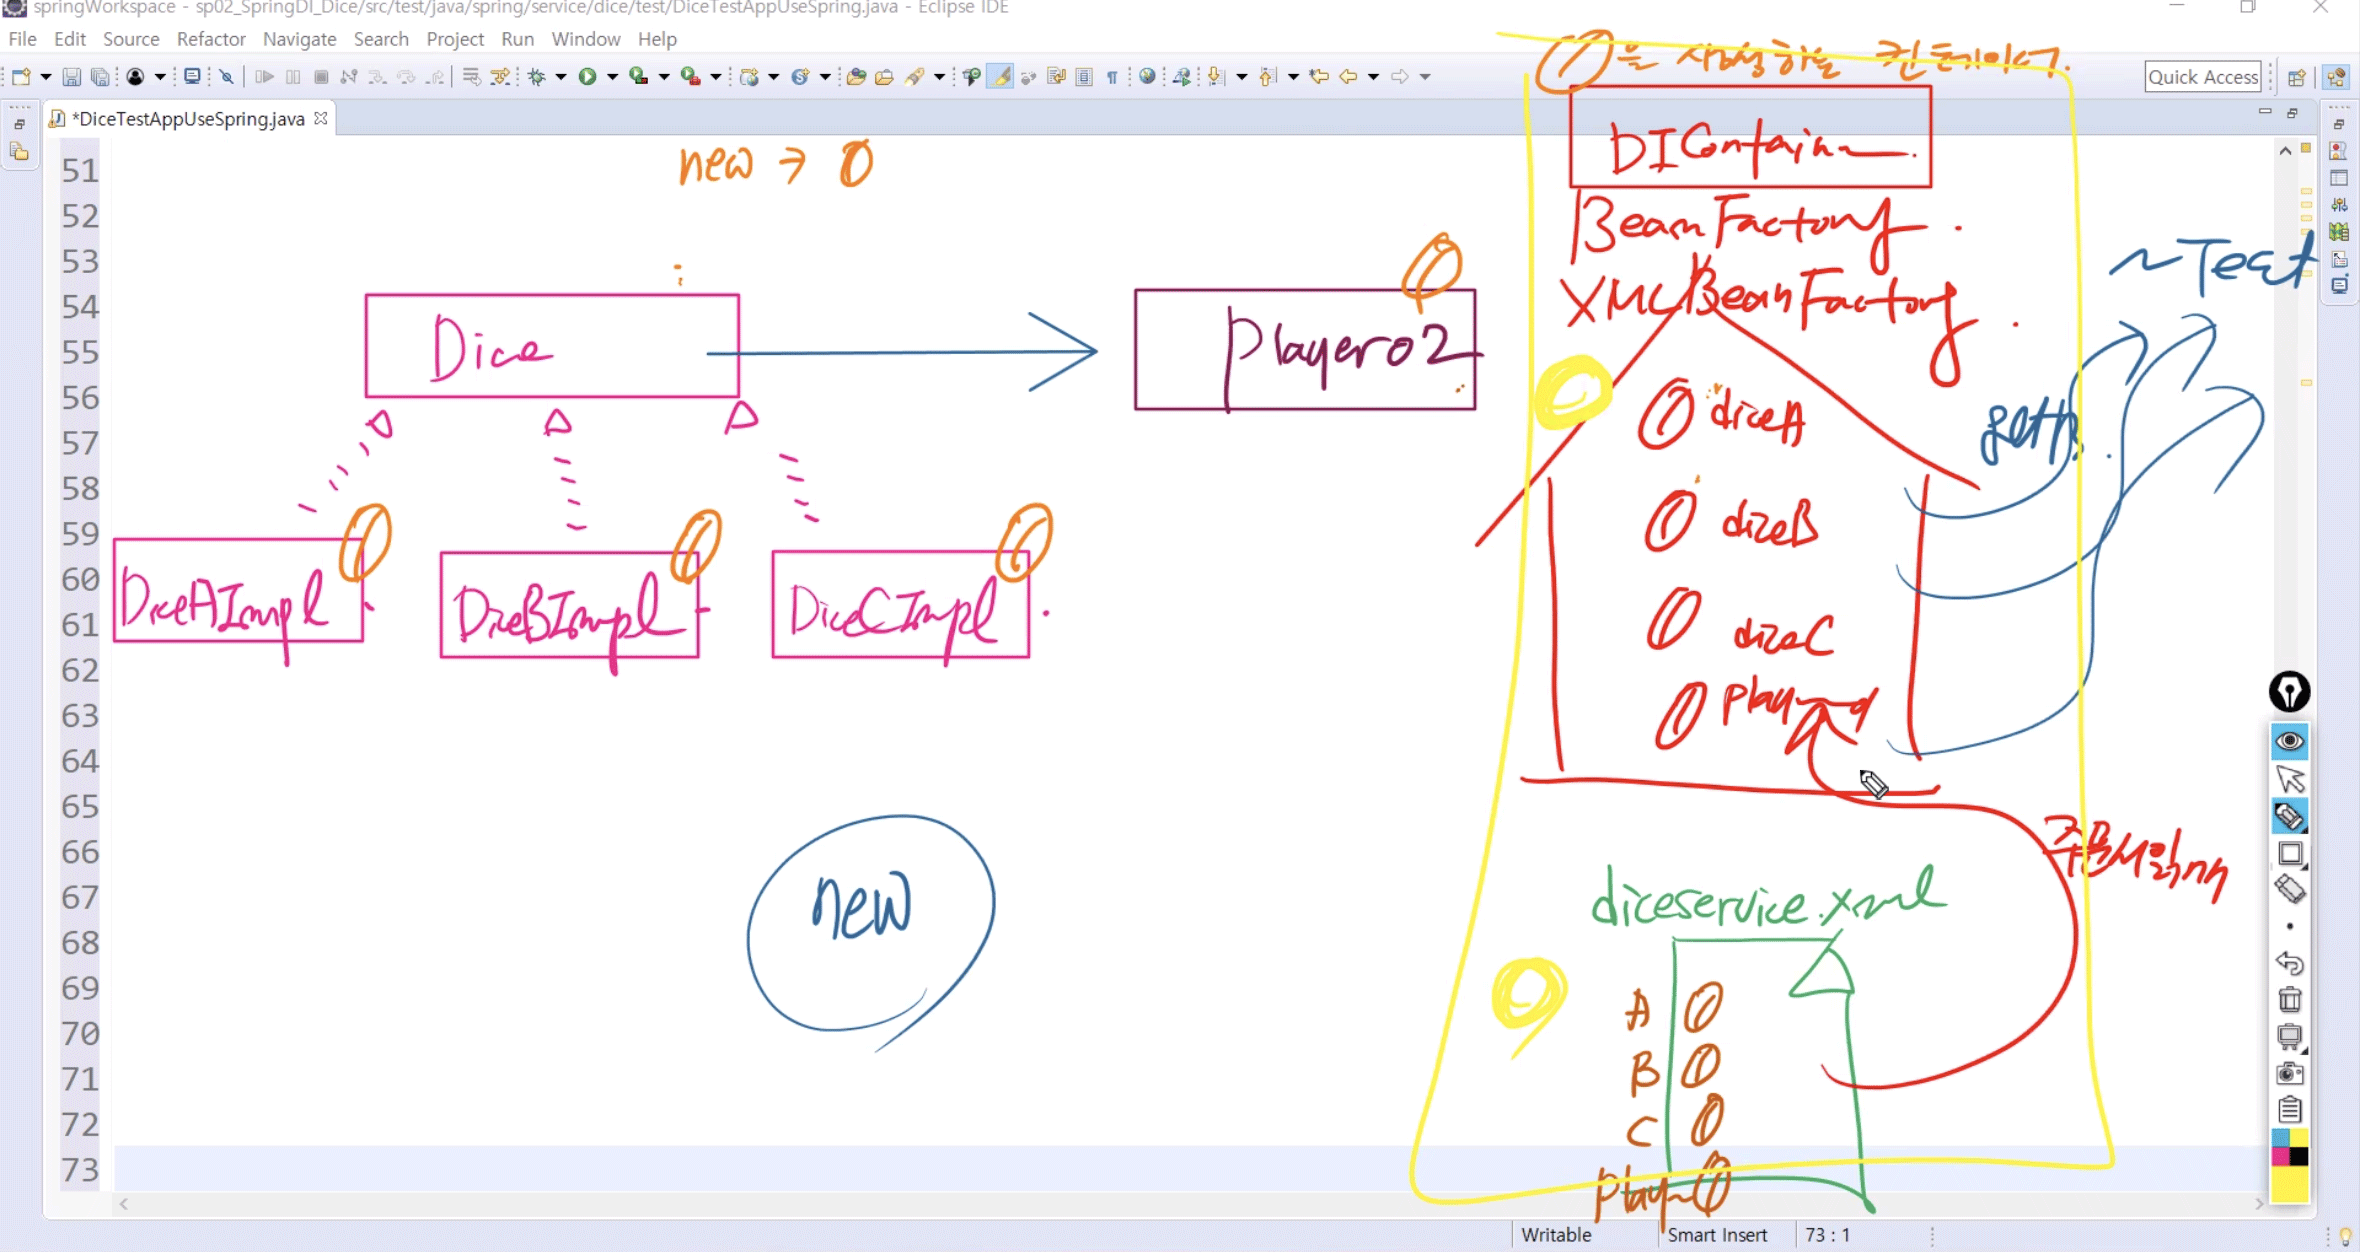 springWorkspace - sp02_SpringDI_Dice/src/test/java/spring/service/dice/test/DiceTestAppUseSpring.java - Eclipse IDE
File Edit Source Refactor Navigate Search Project Run Window Help
Quick Access
*DiceTestAppUseSpring.java
51
52
53
54
55
56
57
58
59
60
61
62
63
64
65
66
67
68
69
70
71
72
73
new → 0
Dice
Player02
DiceAImpl
DiceBImpl
DiceCImpl
new
을 생성하는 컨테이너
DI
BeanFactory
XMLBeanFactory
~Test
diceA
diceB
diceC
diceservice.xml
A
B
C
Writable Smart Insert 73 : 1